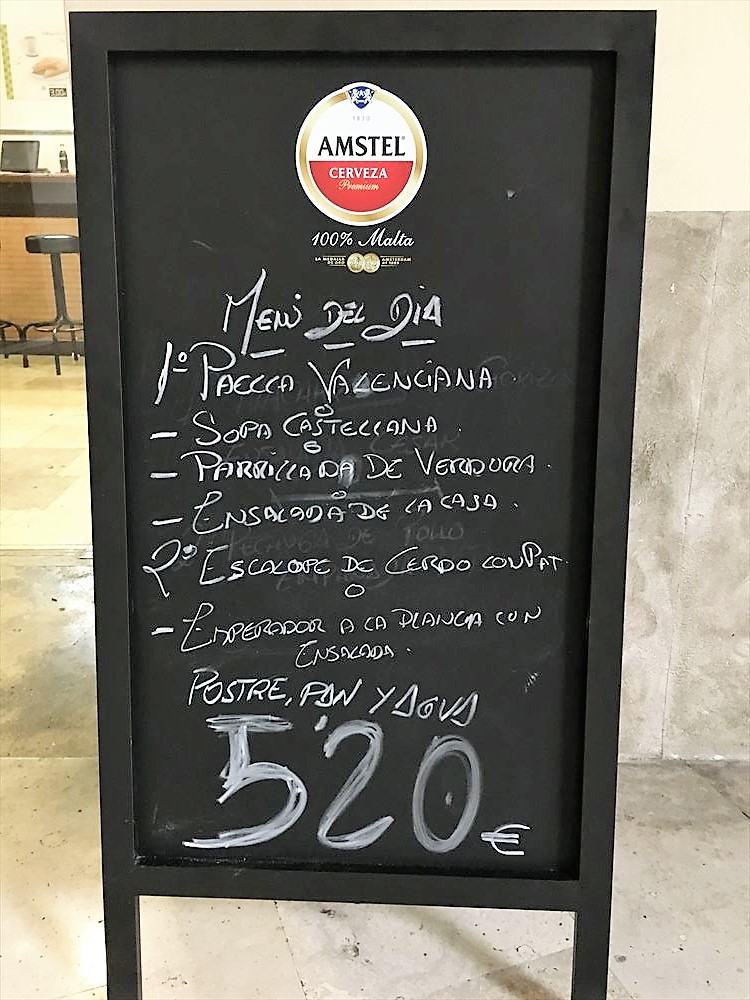 1870
AMSTEL
CERVEZA
Premium
100% Malta
LA MEDALLA DE ORO
AMSTERDAM
MENÚ DEL DÍA
1º PAELLA VALENCIANA.
O
- SOPA CASTELLANA.
O
- PARRILLADA DE VERDURA.
O
- ENSALADA DE LA CASA.
2º ESCALOPE DE CERDO CON PAT.
O
- EMPERADOR A LA PLANCHA CON
ENSALADA.
POSTRE, PAN Y AGUA
5'20 €